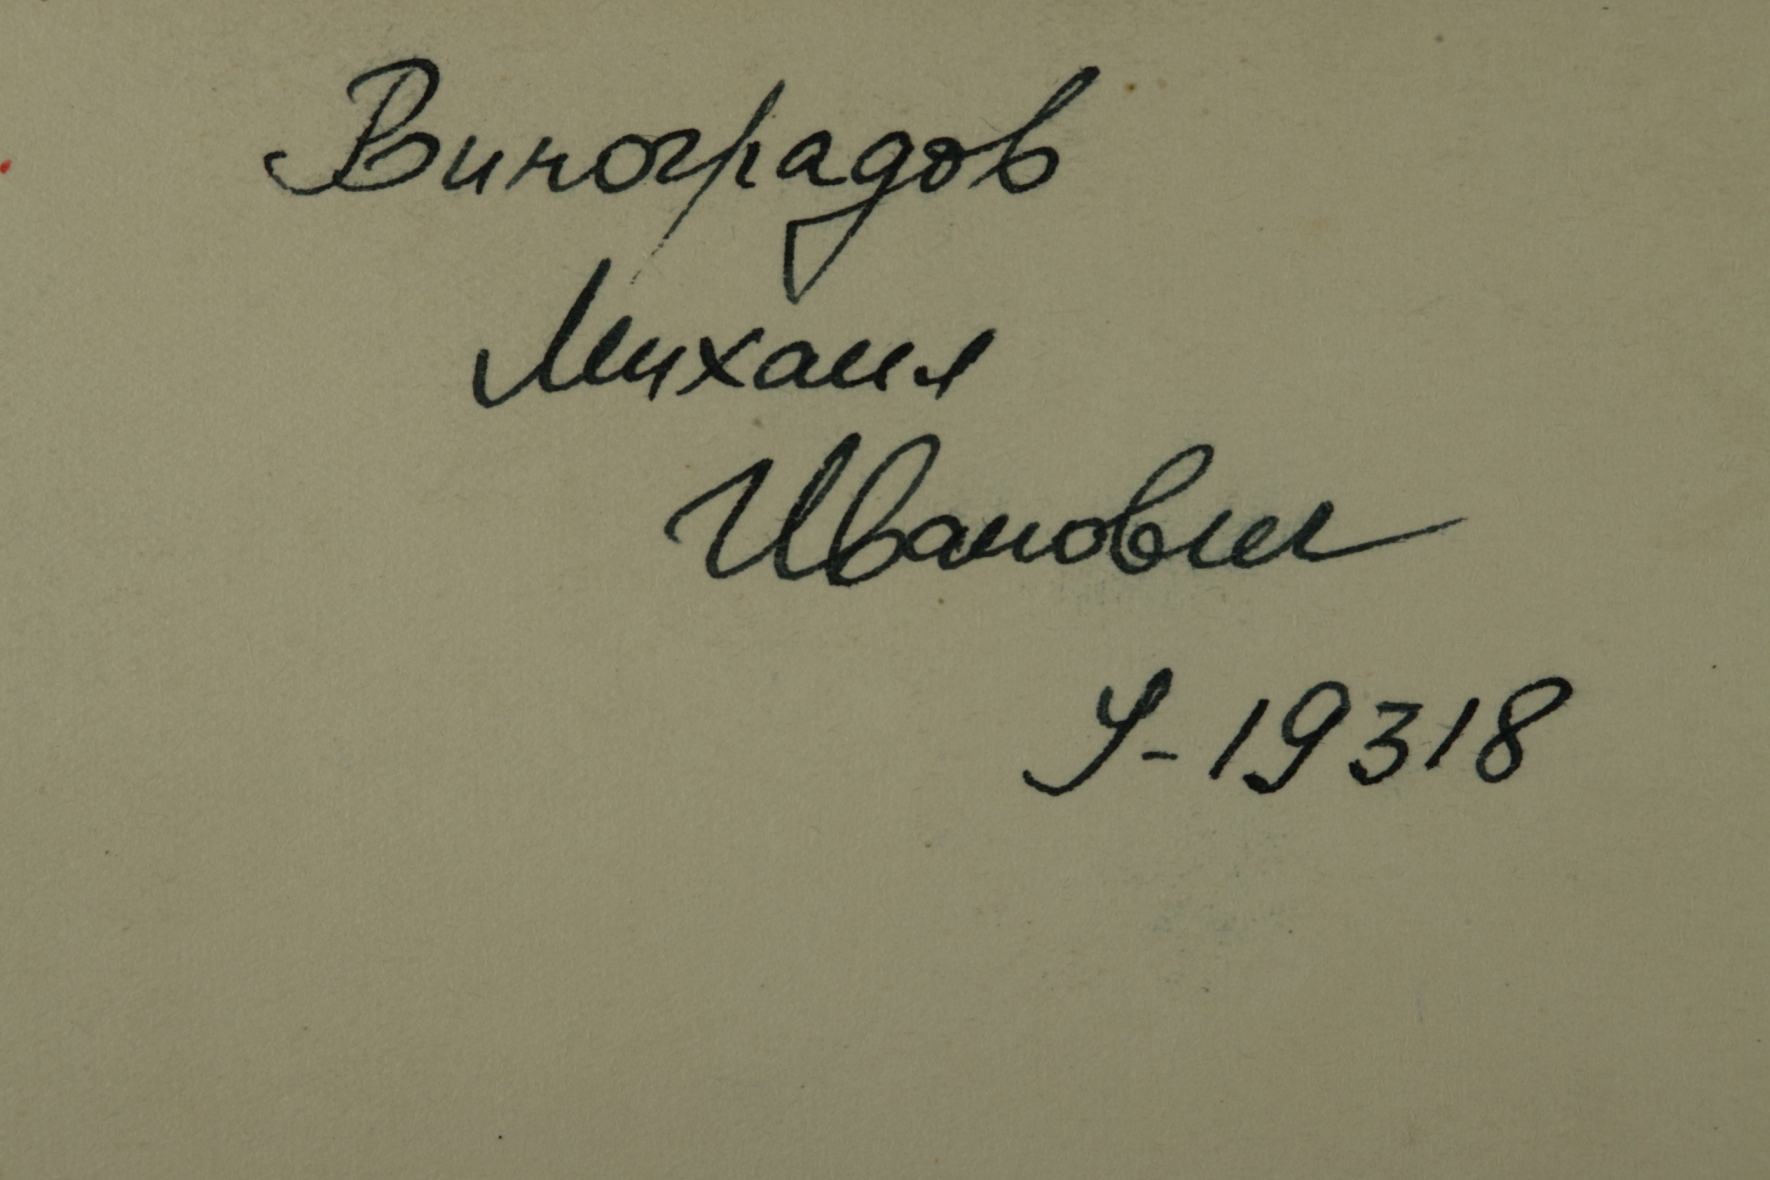 Виноградов
Михаил
Иванович
У-19318